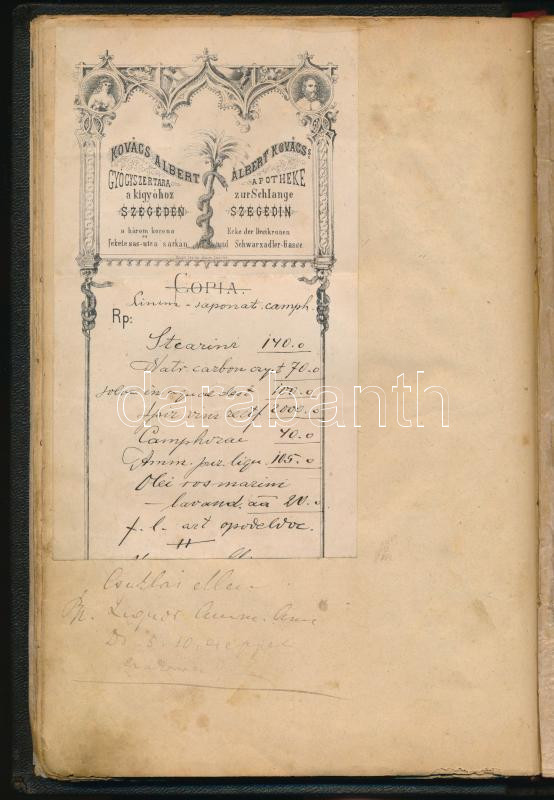 KOVÁCS ALBERT
GYÓGYSZERTÁRA
a kigyóhoz
SZEGEDEN
a három korona
és
Fekete sas-utca sarkán
ALBERT KOVÁCS
APOTHEKE
zur Schlange
SZEGEDIN
Ecke der Dreikronen
und Schwarzadler-Gasse
COPIA.
Linim - saponat. camph.
Rp:
Stearini 140.0
Natr carbon cryst 70.0
solve in aquae dest 100.0
Spir vini rectf 2000.0
Camphorae 40.0
Amm. pur. liqu. 105.0
Olei rosmarini
— lavand. āā 20.0
f. l. art opodeldoc.
darabanth
Rp. Liquor Amm. Anis
5-10